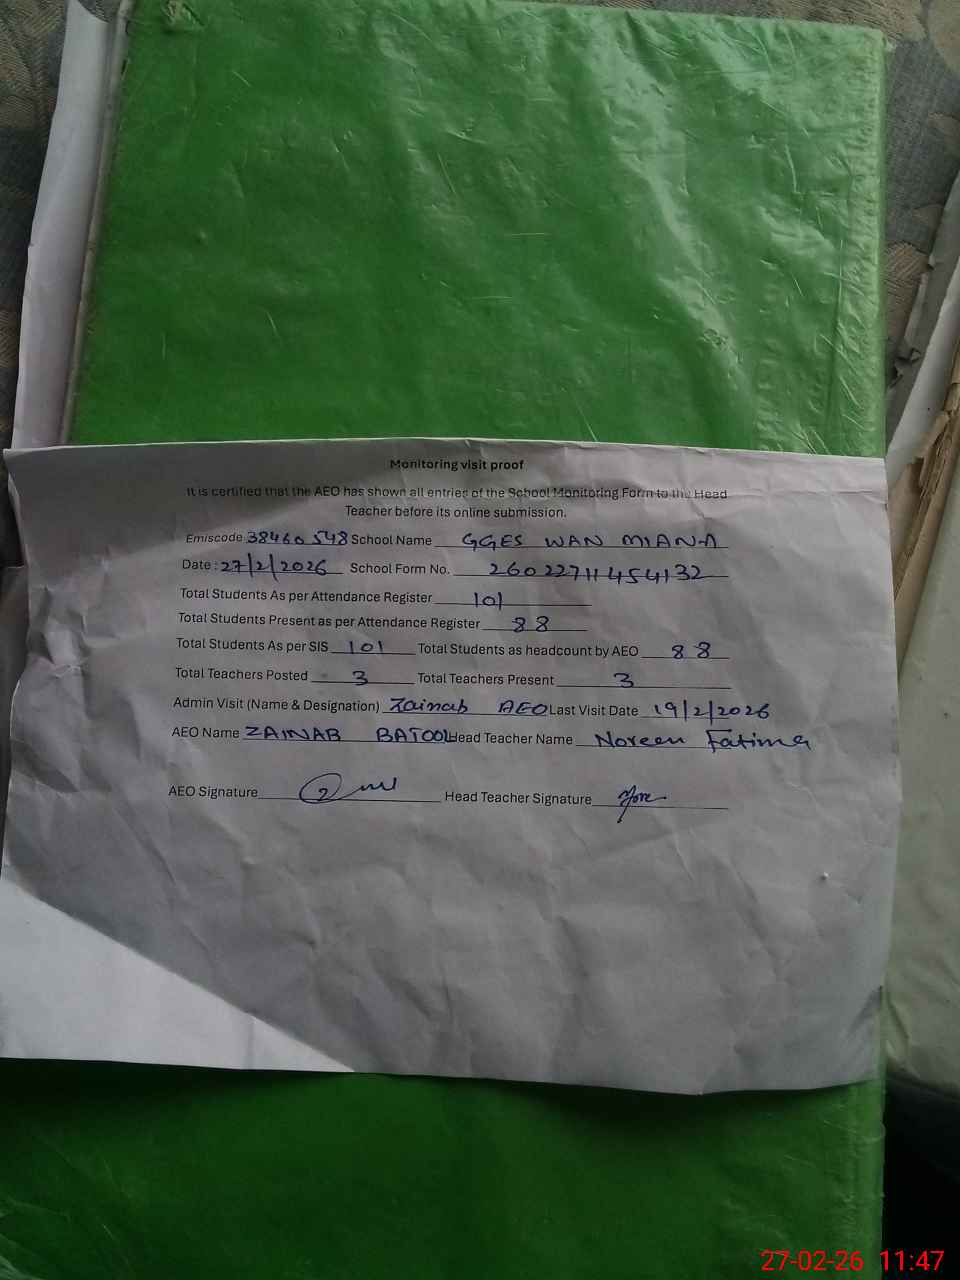 Monitoring visit proof
It is certified that the AEO has shown all entries of the School Monitoring Form to the Head
Teacher before its online submission.
Emiscode 38460548 School Name GGES WAN MIANA
Date : 27/2/2026 School Form No. 26022711454132
Total Students As per Attendance Register 101
Total Students Present as per Attendance Register 88
Total Students As per SIS 101 Total Students as headcount by AEO 88
Total Teachers Posted 3 Total Teachers Present 3
Admin Visit (Name & Designation) Zainab AEO Last Visit Date 19/2/2026
AEO Name ZAINAB BATOOL Head Teacher Name Noreen Fatima
AEO Signature Head Teacher Signature
27-02-26 11:47